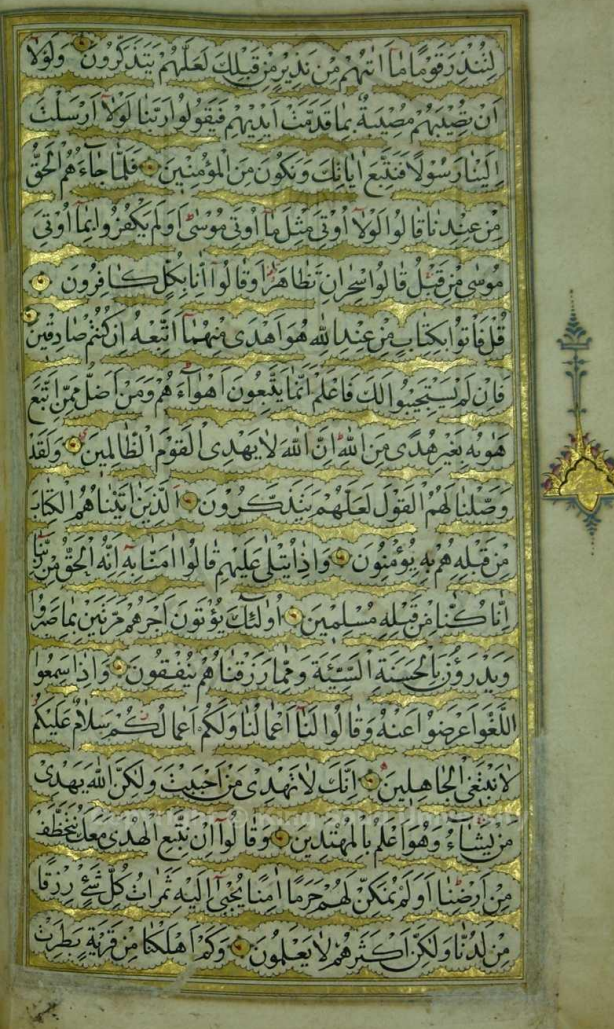 لِتُنْذِرَ قَوْمًا مَا اَتٰیهُمْ مِنْ نَذِيرٍ مِنْ قَبْلِكَ لَعَلَّهُمْ يَتَذَكَّرُونَ وَلَوْلَا
اَنْ تُصِيبَهُمْ مُصِيبَةٌ بِمَا قَدَّمَتْ اَيْدِيهِمْ فَيَقُولُوا رَبَّنَا لَوْلَا اَرْسَلْتَ
اِلَيْنَا رَسُولًا فَنَتَّبِعَ اٰيَاتِكَ وَنَكُونَ مِنَ الْمُؤْمِنِينَ فَلَمَّا جَاۤءَهُمُ الْحَقُّ
مِنْ عِنْدِنَا قَالُوا لَوْلَا اُوتِيَ مِثْلَ مَا اُوتِيَ مُوسٰى اَوَلَمْ يَكْفُرُوا بِمَا اُوتِيَ
مُوسٰى مِنْ قَبْلُ قَالُوا سِحْرَانِ تَظَاهَرَا وَقَالُوا اِنَّا بِكُلٍّ كَافِرُونَ
قُلْ فَأْتُوا بِكِتَابٍ مِنْ عِنْدِ اللهِ هُوَ اَهْدٰى مِنْهُمَا اَتَّبِعْهُ اِنْ كُنْتُمْ صَادِقِينَ
فَاِنْ لَمْ يَسْتَجِيبُوا لَكَ فَاعْلَمْ اَنَّمَا يَتَّبِعُونَ اَهْوَاۤءَهُمْ وَمَنْ اَضَلُّ مِمَّنِ اتَّبَعَ
هَوٰيهُ بِغَيْرِ هُدًى مِنَ اللهِ اِنَّ اللهَ لَا يَهْدِى الْقَوْمَ الظَّالِمِينَ وَلَقَدْ
وَصَّلْنَا لَهُمُ الْقَوْلَ لَعَلَّهُمْ يَتَذَكَّرُونَ اَلَّذِينَ اٰتَيْنَاهُمُ الْكِتَابَ
مِنْ قَبْلِهِ هُمْ بِهِ يُؤْمِنُونَ وَاِذَا يُتْلٰى عَلَيْهِمْ قَالُوا اٰمَنَّا بِهِ اِنَّهُ الْحَقُّ مِنْ رَبِّنَا
اِنَّا كُنَّا مِنْ قَبْلِهِ مُسْلِمِينَ اُولٰئِكَ يُؤْتَوْنَ اَجْرَهُمْ مَرَّتَيْنِ بِمَا صَبَرُوا
وَيَدْرَؤُنَ بِالْحَسَنَةِ السَّيِّئَةَ وَمِمَّا رَزَقْنَاهُمْ يُنْفِقُونَ وَاِذَا سَمِعُوا
اللَّغْوَ اَعْرَضُوا عَنْهُ وَقَالُوا لَنَا اَعْمَالُنَا وَلَكُمْ اَعْمَالُكُمْ سَلَامٌ عَلَيْكُمْ
لَا نَبْتَغِى الْجَاهِلِينَ اِنَّكَ لَا تَهْدِى مَنْ اَحْبَبْتَ وَلٰكِنَّ اللهَ يَهْدِى
مَنْ يَشَاۤءُ وَهُوَ اَعْلَمُ بِالْمُهْتَدِينَ وَقَالُوا اِنْ نَتَّبِعِ الْهُدٰى مَعَكَ نُتَخَطَّفْ
مِنْ اَرْضِنَا اَوَلَمْ نُمَكِّنْ لَهُمْ حَرَمًا اٰمِنًا يُجْبٰى اِلَيْهِ ثَمَرَاتُ كُلِّ شَيْءٍ رِزْقًا
مِنْ لَدُنَّا وَلٰكِنَّ اَكْثَرَهُمْ لَا يَعْلَمُونَ وَكَمْ اَهْلَكْنَا مِنْ قَرْيَةٍ بَطِرَتْ